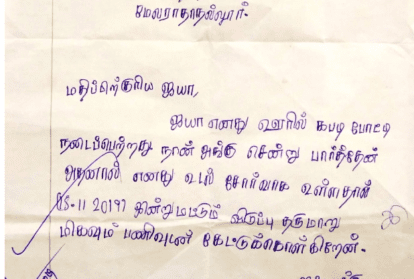 மேலராதாநல்லூர்.
மதிப்பிற்குரிய ஐயா,
ஐயா எனது ஊரில் கபடி போட்டி
நடைபெற்றது நான் அங்கு சென்று பார்த்தேன்
அதனால் எனது உடல் சோர்வாக உள்ளதால்
(15.11 2019) இன்றுமட்டும் விடுப்பு தருமாறு
மிகவும் பணிவுடன் கேட்டுக்கொள்கிறேன்.